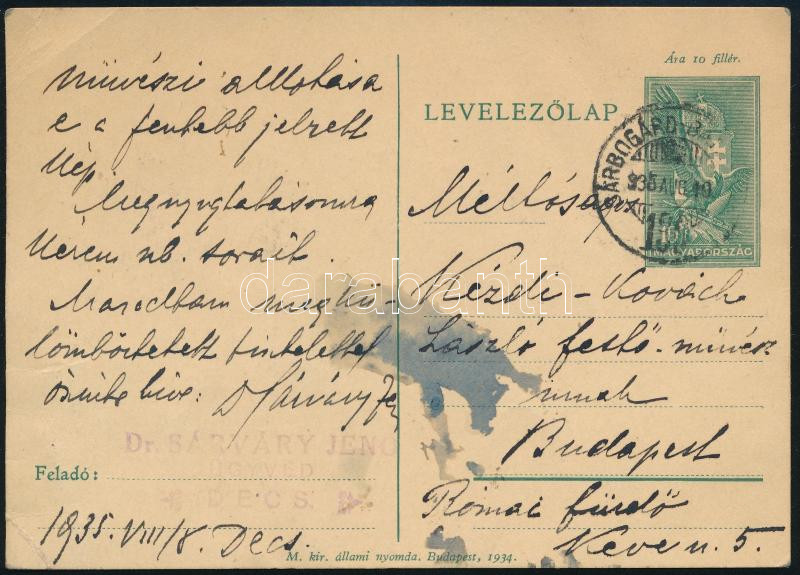 művészi alkotása
e a fentebb jelzett
kép.
Megnyugtatásomra
kérem nb. sorait.
Maradtam megkü-
lömböztetett tisztelettel
őszinte híve: Dr Sárváry Jenő
Dr. SÁRVÁRY JENŐ
ÜGYVÉD
DECS.
Feladó:
1935. VIII/8. Decs.
M. kir. állami nyomda. Budapest, 1934.
Ára 10 fillér.
LEVELEZŐLAP
SÁRBOGÁRD
935 AUG 10
10
MAGYARORSZÁG
Méltóságos
Kézdi-Kovách
László festő-művész
úrnak
Budapest
Római fürdő
Keve u. 5.
darabanth